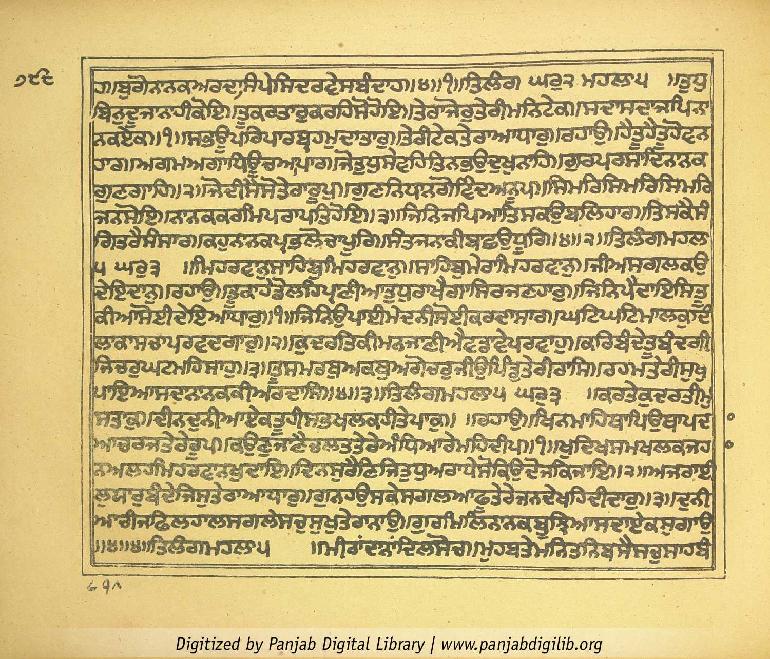 ਹ॥ਬੁਗੋਨਾਨਕਅਰਦਾਸਿਪੇਸਿਦਰਵੇਸਬੰਦਾਹ॥੪॥੧॥ਤਿਲੰਗ ਘਰੁ੨ ਮਹਲਾ੫ ॥ਤੁਧੁ
ਬਿਨੁਦੂਜਾਨਾਹੀਕੋਇ॥ਤੂਕਰਤਾਰੁਕਰਹਿਸੋਹੋਇ॥ਤੇਰਾਜੋਰੁਤੇਰੀਮਨਿਟੇਕ॥ਸਦਾਸਦਾਜਪਿਨਾ
ਨਕਏਕ॥੧॥ਸਭਊਪਰਿਪਾਰਬ੍ਰਹਮੁਦਾਤਾਰੁ॥ਤੇਰੀਟੇਕਤੇਰਾਆਧਾਰੁ॥ਰਹਾਉ॥ਹੈਤੂਹੈਤੂਹੋਵਨ
ਹਾਰ॥ਅਗਮਅਗਾਧਿਊਚਆਪਾਰ॥ਜੋਤੁਧੁਸੇਵਹਿਤਿਨਭਉਦੁਖੁਨਾਹਿ॥ਗੁਰਪਰਸਾਦਿਨਾਨਕ
ਗੁਣਗਾਹਿ॥੨॥ਜੋਦੀਸੈਸੋਤੇਰਾਰੂਪੁ॥ਗੁਣਨਿਧਾਨਗੋਵਿੰਦਅਨੂਪ॥ਸਿਮਰਿਸਿਮਰਿਸਿਮਰਿ
ਜਨਸੋਇ॥ਨਾਨਕਕਰਮਿਪਰਾਪਤਿਹੋਇ॥੩॥ਜਿਨਿਜਪਿਆਤਿਸਕਉਬਲਿਹਾਰ॥ਤਿਸਕੈਸੰ
ਗਿਤਰੈਸੰਸਾਰ॥ਕਹੁਨਾਨਕਪ੍ਰਭਲੋਚਾਪੂਰਿ॥ਸੰਤਜਨਾਕੀਬਾਛਉਧੂਰਿ॥੪॥੨॥ਤਿਲੰਗਮਹਲਾ
੫ ਘਰੁ੩ ॥ਮਿਹਰਵਾਨੁਸਾਹਿਬੁਮਿਹਰਵਾਨੁ॥ਸਾਹਿਬੁਮੇਰਾਮਿਹਰਵਾਨੁ॥ਜੀਅਸਗਲਕਉ
ਦੇਇਦਾਨੁ॥ਰਹਾਉ॥ਤੂਕਾਹੇਡੋਲਹਿਪ੍ਰਾਣੀਆਤੁਧੁਰਾਖੈਗਾਸਿਰਜਣਹਾਰੁ॥ਜਿਨਿਪੈਦਾਇਸਿਤੂ
ਕੀਆਸੋਈਦੇਇਆਧਾਰੁ॥੧॥ਜਿਨਿਉਪਾਈਮੇਦਨੀਸੋਈਕਰਦਾਸਾਰ॥ਘਟਿਘਟਿਮਾਲਕੁਦਿ
ਲਾਕਾਸਚਾਪਰਵਦਗਾਰੁ॥੨॥ਕੁਦਰਤਿਕੀਮਨਜਾਣੀਐਵਡਾਵੇਪਰਵਾਹੁ॥ਕਰਿਬੰਦੇਤੂਬੰਦਗੀ
ਜਿਚਰੁਘਟਮਹਿਸਾਹੁ॥੩॥ਤੂਸਮਰਥੁਅਕਥੁਅਗੋਚਰੁਜੀਉਪਿੰਡੁਤੇਰੀਰਾਸਿ॥ਰਹਮਤੇਰੀਸੁਖੁ
ਪਾਇਆਸਦਾਨਾਨਕਕੀਅਰਦਾਸਿ॥੪॥੩॥ਤਿਲੰਗਮਹਲਾ੫ ਘਰੁ੩ ॥ਕਰਤੇਕੁਦਰਤੀਮੁ
ਸਤਾਕੁ॥ਦੀਨਦੁਨੀਆਏਕਤੂਹੀਸਭਖਲਕਹੀਤੇਪਾਕੁ॥ ॥ਰਹਾਉ॥ਖਿਨਮਾਹਿਥਾਪਿਉਥਾਪਦਾ
ਆਚਰਜਤੇਰੇਰੂਪ॥ਕਉਣੁਜਾਣੈਚਲਤਤੇਰੇਅੰਧਿਆਰੇਮਹਿਦੀਪ॥੧॥ਖੁਦਿਖਸਮਖਲਕਜਹਾ
ਨਅਲਹਮਿਹਰਵਾਨਖੁਦਾਇ॥ਦਿਨਸੁਰੈਣਿਜਿਤੁਧੁਅਰਾਧੇਸੋਕਿਉਦੋਜਕਿਜਾਇ॥੨॥ਅਜਰਾਈ
ਲੁਯਾਰੁਬੰਦੇਜਿਸੁਤੇਰਾਆਧਾਰੁ॥ਗੁਨਹਉਸਕੇਸਗਲਆਫੂਤੇਰੇਜਨਦੇਖਹਿਦੀਦਾਰੁ॥੩॥ਦੁਨੀ
ਆਚੀਜਫਿਲਹਾਲਸਗਲੇਸਚੁਸੁਖੁਤੇਰਾਨਾਉ॥ਗੁਰਮਿਲਿਨਾਨਕਬੂਝਿਆਸਦਾਏਕਸੁਗਾਉ
॥੪॥੪॥ਤਿਲੰਗਮਹਲਾ੫ ॥ਮੀਰਾਂਦਾਨਾਂਦਿਲਸੋਚ॥ਮੁਹਬਤੇਮਨਿਤਨਿਬਸੈਸਚੁਸਾਹਬੰ
Digitized by Panjab Digital Library | www.panjabdigilib.org